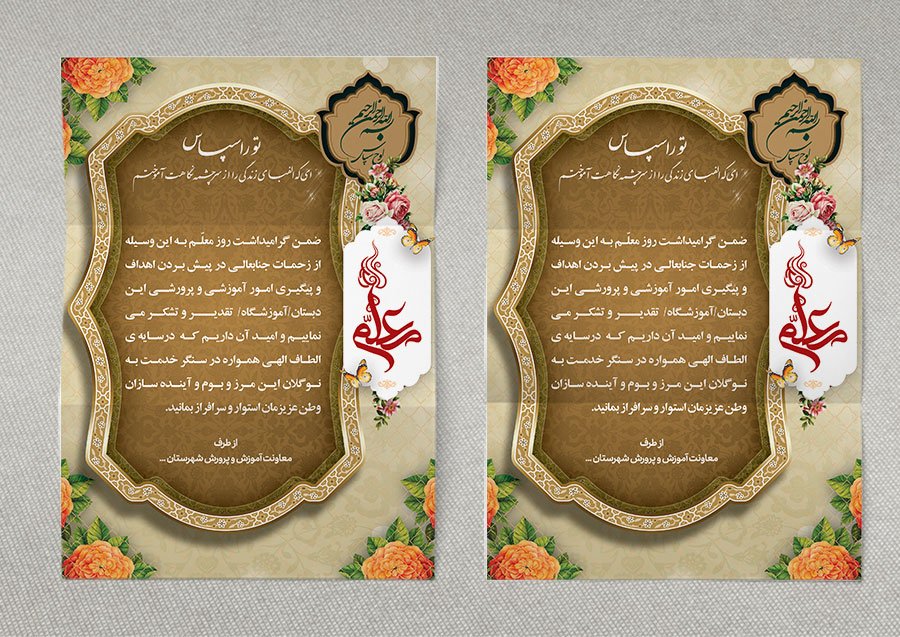 بسم الله الرحمن الرحیم
لوح سپاس
تو را سپاس
ای که الفبای زندگی را از سرچشمه نگاهت آموختم
ضمن گرامیداشت روز معلّم به این وسیله
از زحمات جنابعالی در پیش بردن اهداف
و پیگیری امور آموزشی و پرورشی این
دبستان/آموزشگاه/ تقدیر و تشکر می
نماییم و امید آن داریم که درسایه ی
الطاف الهی همواره در سنگر خدمت به
نوگلان این مرز و بوم و آینده سازان
وطن عزیزمان استوار و سرافراز بمانید.
از طرف
معاونت آموزش و پرورش شهرستان ...
معلّم
بسم الله الرحمن الرحیم
لوح سپاس
تو را سپاس
ای که الفبای زندگی را از سرچشمه نگاهت آموختم
ضمن گرامیداشت روز معلّم به این وسیله
از زحمات جنابعالی در پیش بردن اهداف
و پیگیری امور آموزشی و پرورشی این
دبستان/آموزشگاه/ تقدیر و تشکر می
نماییم و امید آن داریم که درسایه ی
الطاف الهی همواره در سنگر خدمت به
نوگلان این مرز و بوم و آینده سازان
وطن عزیزمان استوار و سرافراز بمانید.
از طرف
معاونت آموزش و پرورش شهرستان ...
معلّم